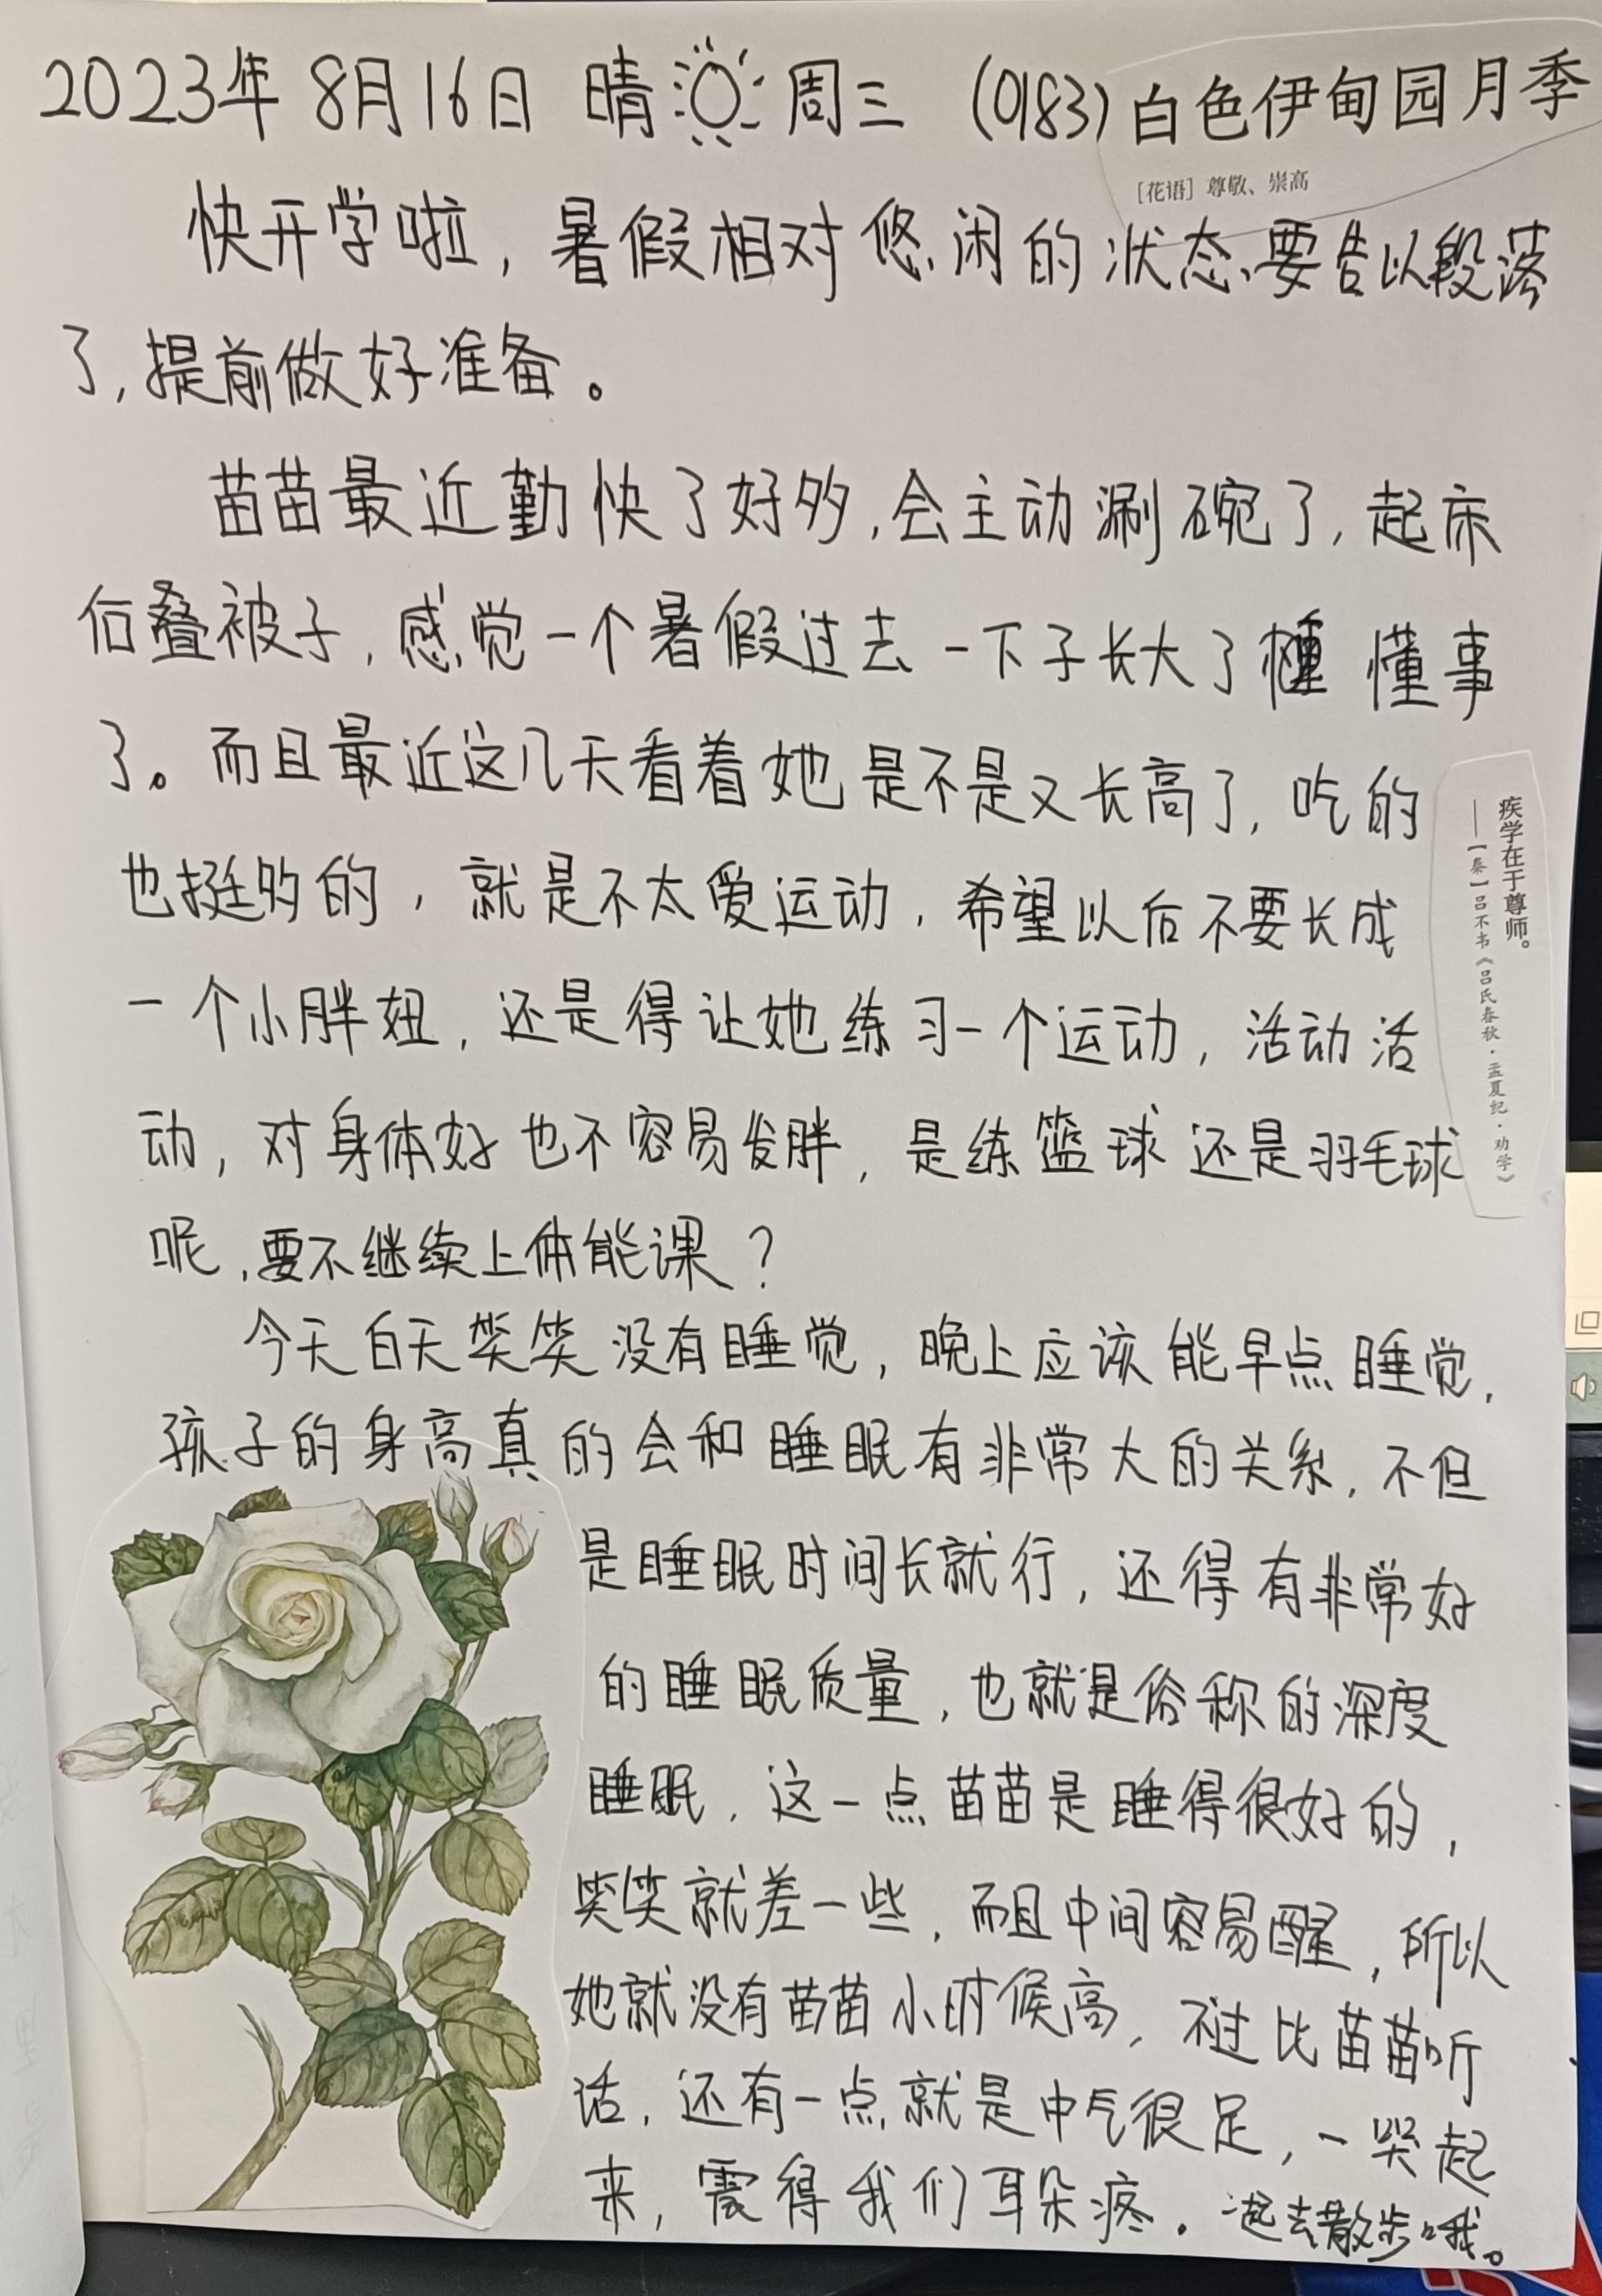 2023年8月16日 晴 周三 (0183) 白色伊甸园月季
[花语] 尊敬、崇高
快开学啦，暑假相对悠闲的状态要告以段落
了，提前做好准备。
苗苗最近勤快了好多，会主动涮碗了，起床
后叠被子，感觉一个暑假过去一下子长大了 懂事
了。而且最近这几天看着她是不是又长高了，吃的
也挺多的，就是不太爱运动，希望以后不要长成
一个小胖妞，还是得让她练习一个运动，活动活
动，对身体好也不容易发胖，是练篮球还是羽毛球
呢，要不继续上体能课？
疾学在于尊师。
——【秦】吕不韦《吕氏春秋·孟夏纪·劝学》
今天白天笑笑没有睡觉，晚上应该能早点睡觉，
孩子的身高真的会和睡眠有非常大的关系，不但
是睡眠时间长就行，还得有非常好
的睡眠质量，也就是俗称的深度
睡眠，这一点苗苗是睡得很好的，
笑笑就差一些，而且中间容易醒，所以
她就没有苗苗小时候高，不过比苗苗听
话，还有一点就是中气很足，一哭起
来，震得我们耳朵疼。一起去散步哦。